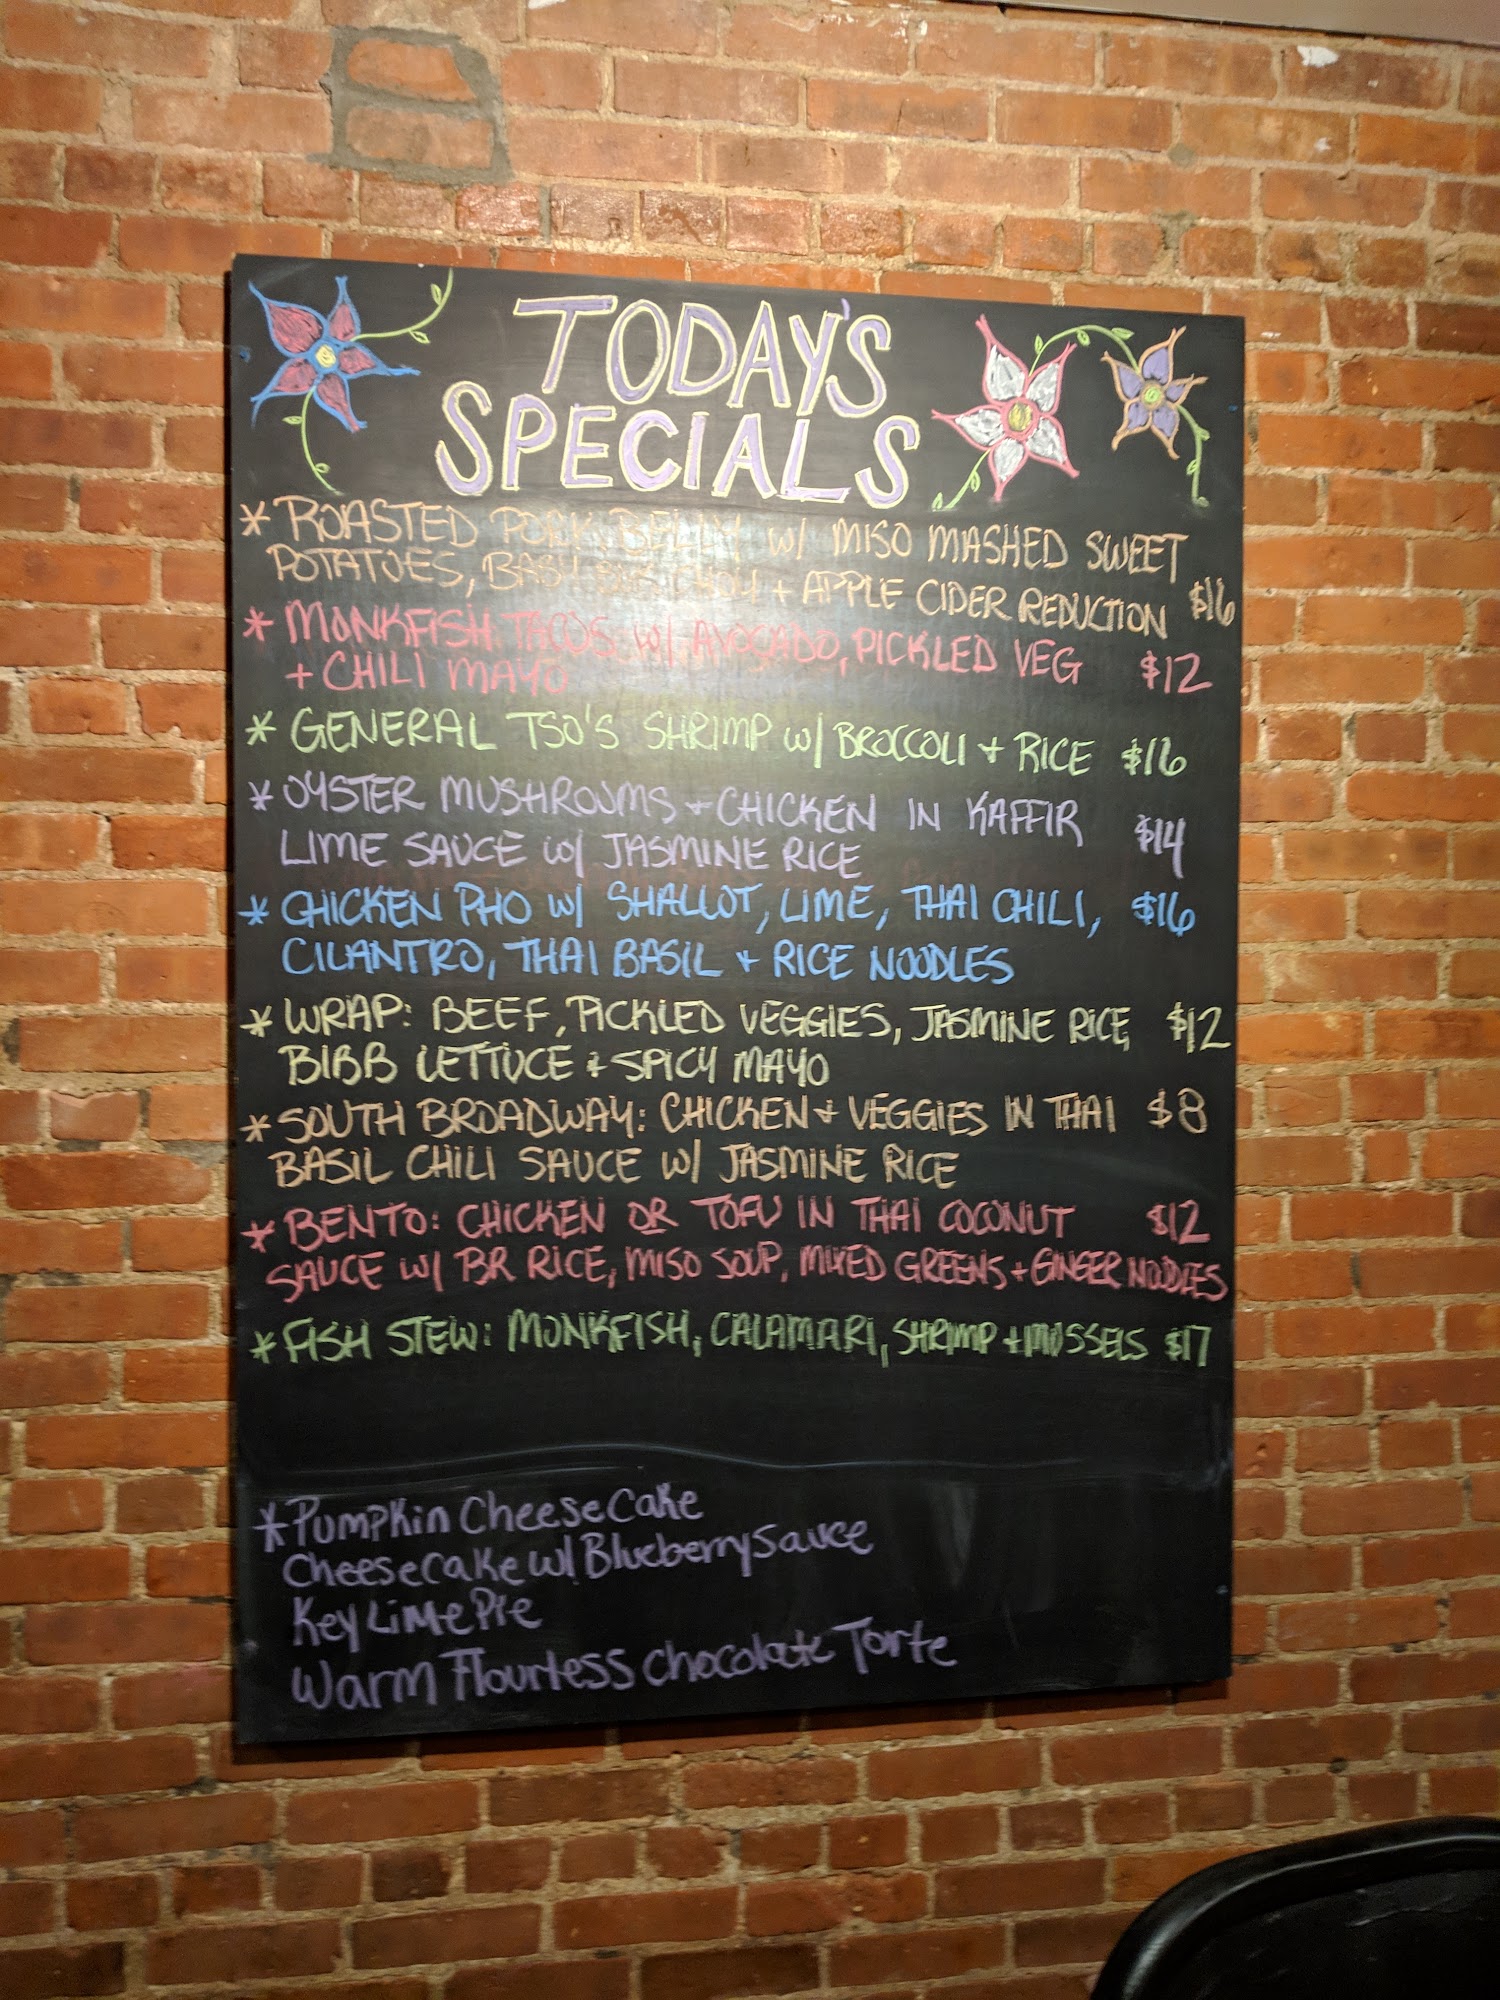 TODAY'S
SPECIALS
* ROASTED PORK BELLY w/ MISO MASHED SWEET
POTATOES, BABY BOK CHOY + APPLE CIDER REDUCTION $16
* MONKFISH TACOS w/ AVOCADO, PICKLED VEG $12
+ CHILI MAYO
* GENERAL TSO'S SHRIMP w/ BROCCOLI + RICE $16
* OYSTER MUSHROOMS + CHICKEN IN KAFFIR $14
LIME SAUCE w/ JASMINE RICE
* CHICKEN PHO w/ SHALLOT, LIME, THAI CHILI, $16
CILANTRO, THAI BASIL + RICE NOODLES
* WRAP: BEEF, PICKLED VEGGIES, JASMINE RICE, $12
BIBB LETTUCE + SPICY MAYO
* SOUTH BROADWAY: CHICKEN + VEGGIES IN THAI $8
BASIL CHILI SAUCE w/ JASMINE RICE
* BENTO: CHICKEN OR TOFU IN THAI COCONUT $12
SAUCE w/ BR RICE, MISO SOUP, MIXED GREENS + GINGER NOODLES
* FISH STEW: MONKFISH, CALAMARI, SHRIMP + MUSSELS $17
* Pumpkin CheeseCake
CheeseCake w/ Blueberry Sauce
Key Lime Pie
Warm Flourless Chocolate Torte